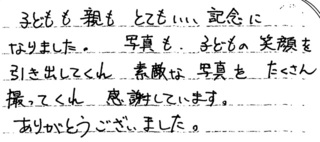 子どもも親も とてもいい 記念に
なりました。 写真も 子どもの 笑顔を
引き出してくれ 素敵な 写真を たくさん
撮ってくれ 感謝しています。
ありがとうございました。